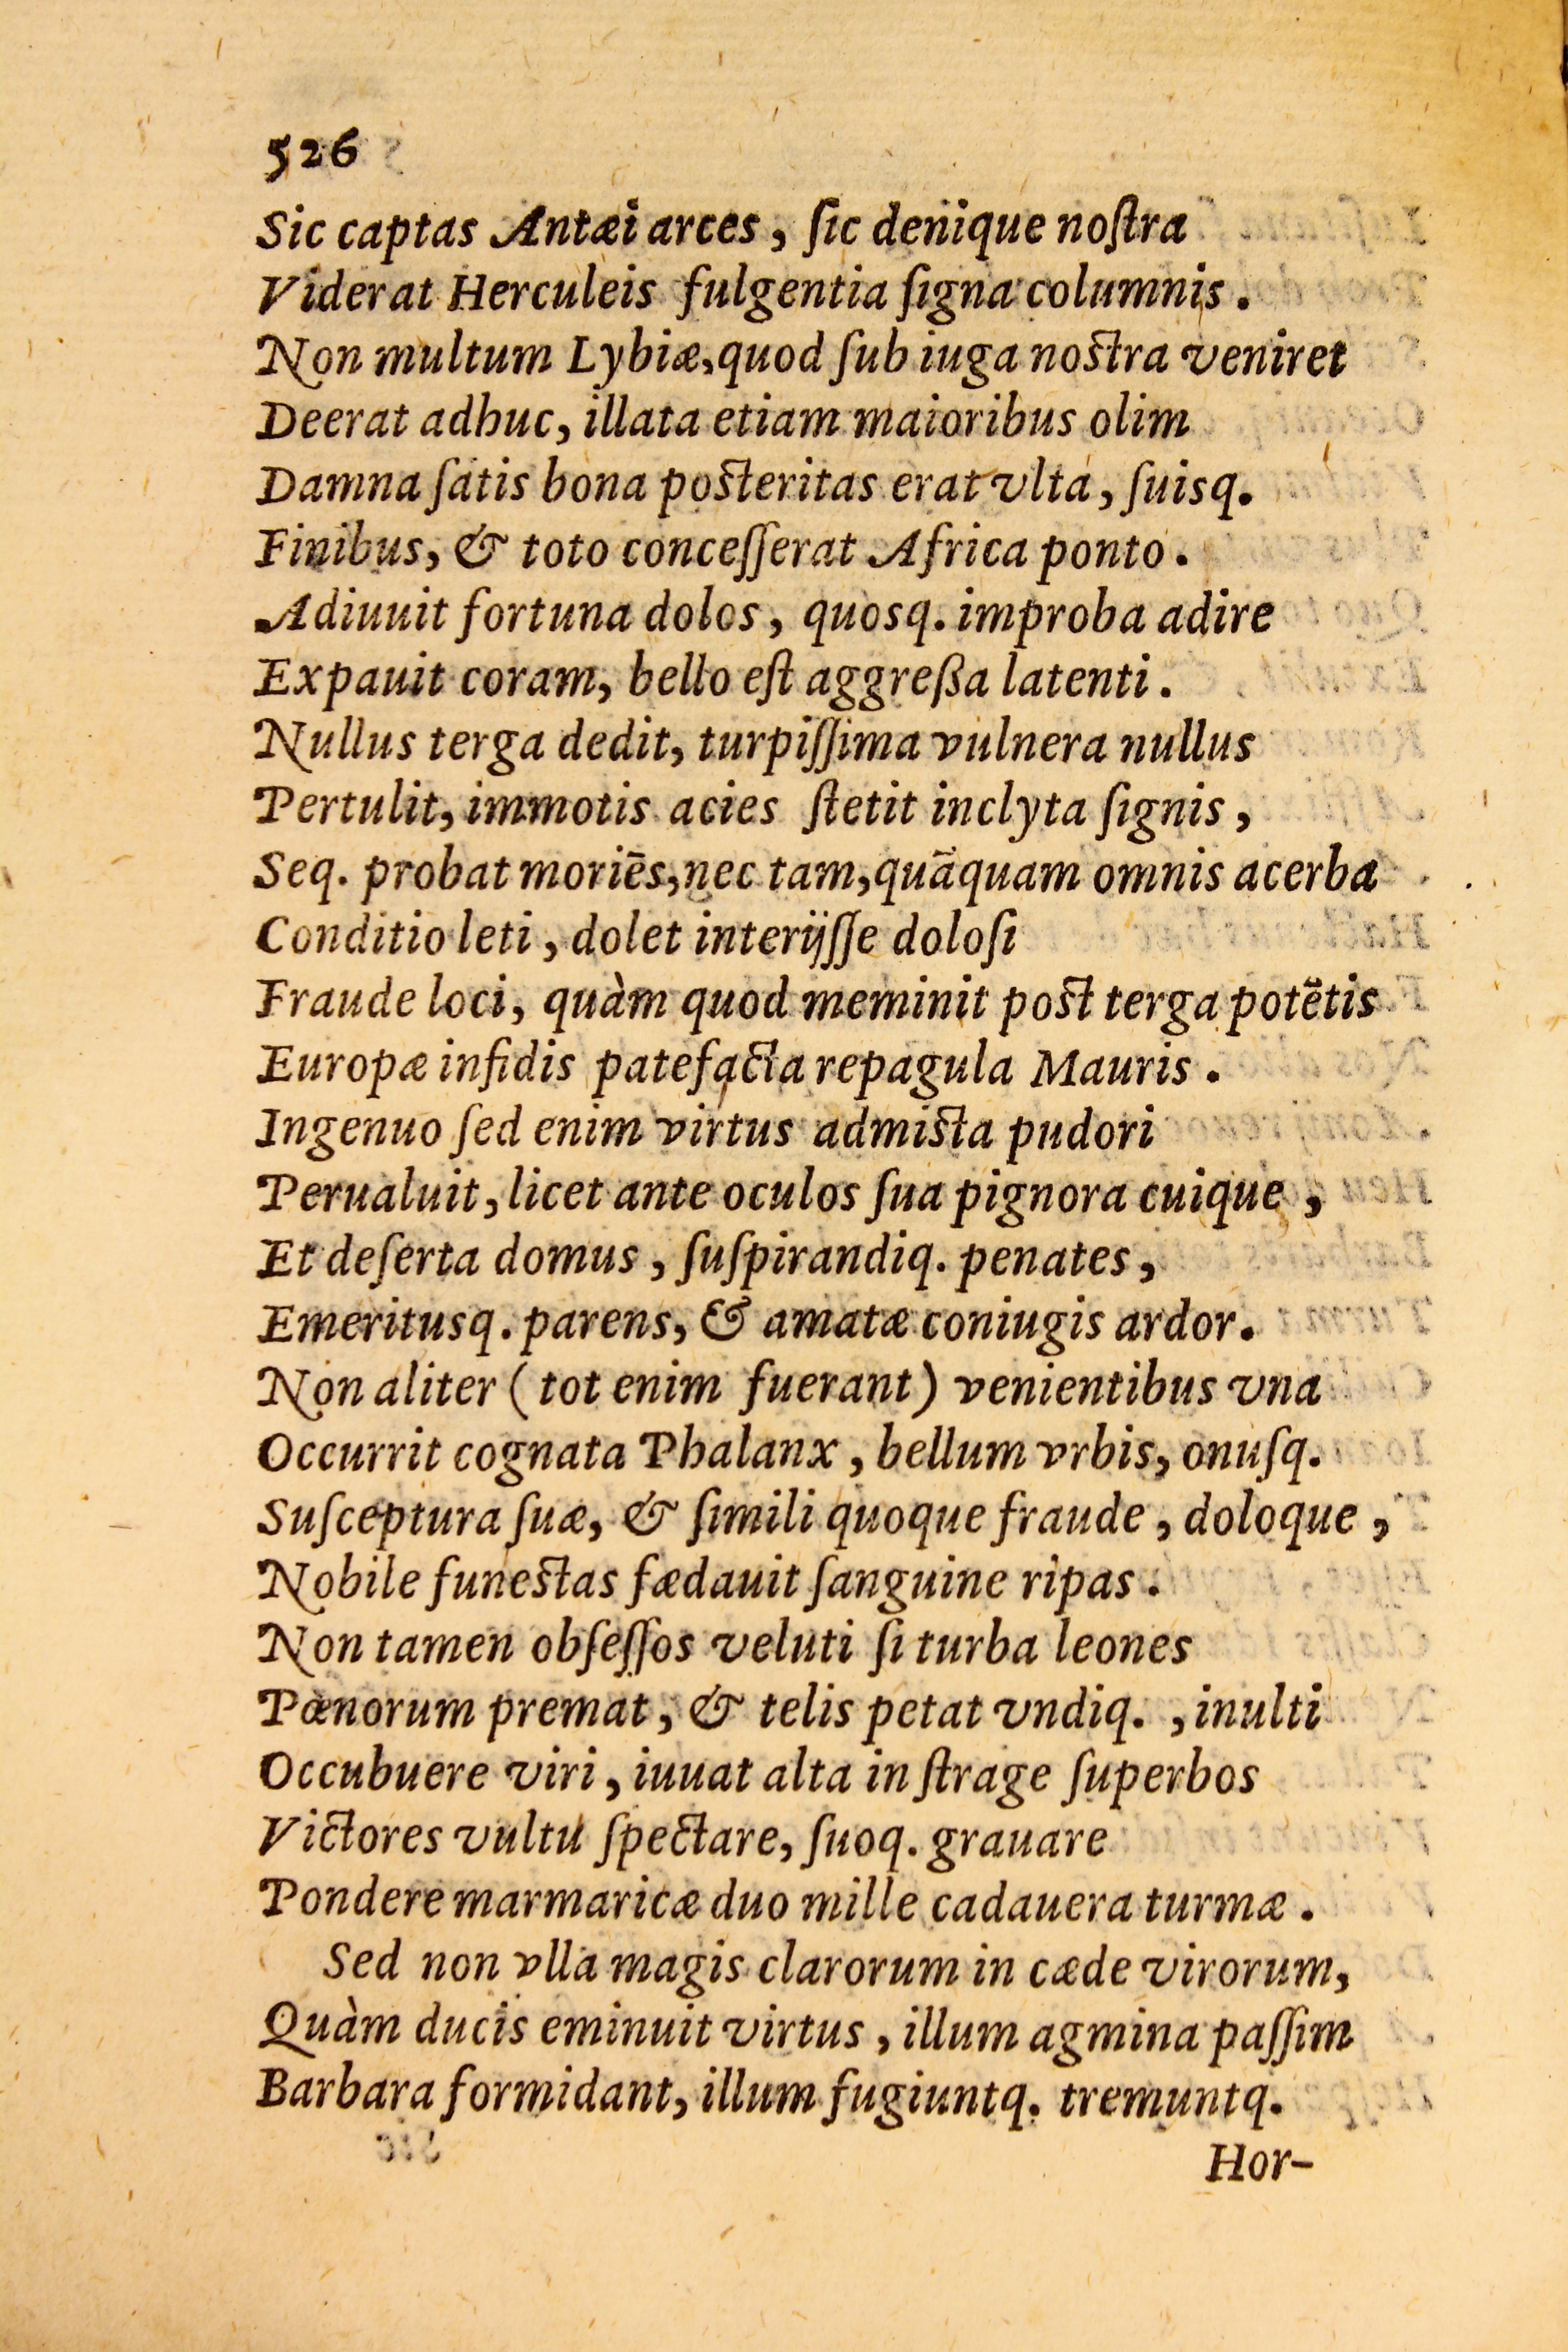 526
Sic captas Antæi arces, ſic denique noſtra
Viderat Herculeis fulgentia ſigna columnis.
Non multum Lybiæ, quod ſub iuga noſtra veniret
Deerat adhuc, illata etiam maioribus olim
Damna ſatis bona poſteritas erat vlta, ſuisq.
Finibus, & toto conceſſerat Africa ponto.
Adiuuit fortuna dolos, quosq. improba adire
Expauit coram, bello eſt aggreßa latenti.
Nullus terga dedit, turpiſſima vulnera nullus
Pertulit, immotis acies ſtetit inclyta ſignis,
Seq. probat moriēs, nec tam, quāquam omnis acerba
Conditio leti, dolet interijſſe doloſi
Fraude loci, quàm quod meminit poſt terga potētis
Europæ infidis patefacta repagula Mauris.
Ingenuo ſed enim virtus admiſta pudori
Perualuit, licet ante oculos ſua pignora cuique,
Et deſerta domus, ſuſpirandiq. penates,
Emeritusq. parens, & amatæ coniugis ardor.
Non aliter (tot enim fuerant) venientibus vna
Occurrit cognata Phalanx, bellum vrbis, onuſq.
Suſceptura ſuæ, & ſimili quoque fraude, doloque,
Nobile funeſtas fædauit ſanguine ripas.
Non tamen obſeſſos veluti ſi turba leones
Pænorum premat, & telis petat vndiq., inulti
Occubuere viri, iuuat alta in ſtrage ſuperbos
Victores vultu ſpectare, ſuoq. grauare
Pondere marmaricæ duo mille cadauera turmæ.
Sed non vlla magis clarorum in cæde virorum,
Quàm ducis eminuit virtus, illum agmina paſſim
Barbara formidant, illum fugiuntq. tremuntq.
Hor-